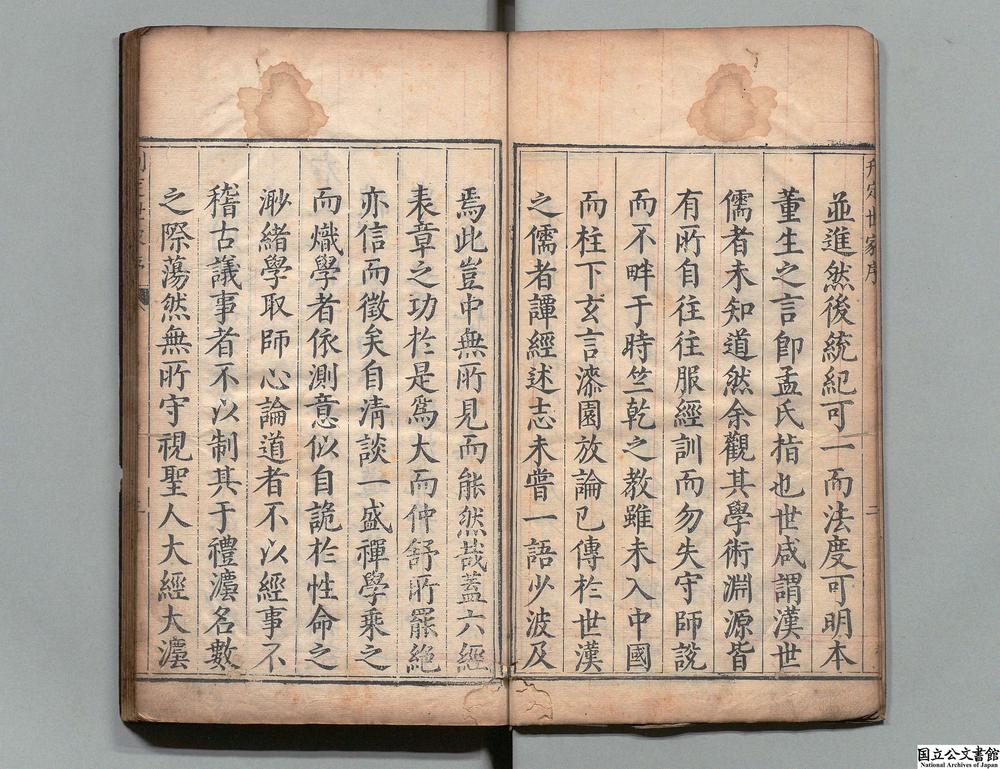 刋定世家序
二
並進然後統紀可一而法度可明本
董生之言卽孟氏指也世咸謂漢世
儒者未知道然余觀其學術淵源皆
有所自往往服經訓而勿失守師說
而不畔于時竺乾之教雖未入中國
而柱下玄言漆園放論已傳於世漢
之儒者譚經述志未嘗一語少波及
焉此豈中無所見而能然哉蓋六經
表章之功於是爲大而仲舒所罷絶
亦信而徵矣自清談一盛禪學乘之
而熾學者依測意似自詭於性命之
渺緒學取師心論道者不以經事不
稽古議事者不以制其于禮灋名數
之際蕩然無所守視聖人大經大灋
国立公文書館
National Archives of Japan